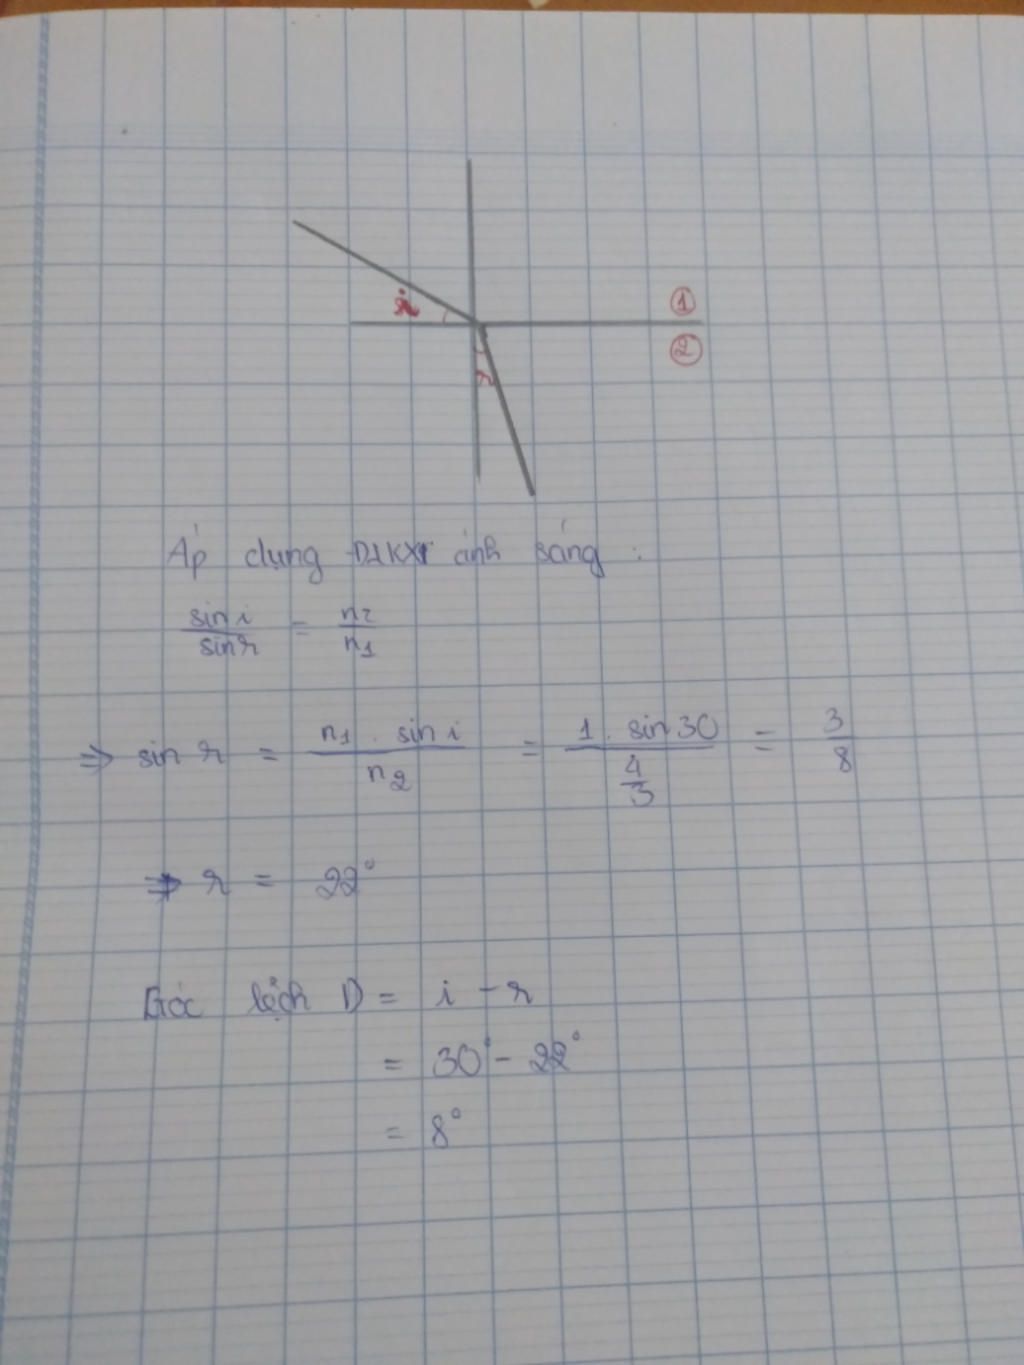 i
①
②
r
Áp dụng ĐLKXT ánh sáng :
sin i / sin r = n2 / n1
⇒ sin r = n1 . sin i / n2 = 1 . sin 30 / (4/3) = 3/8
⇒ r = 22°
Góc lệch D = i - r
= 30° - 22°
= 8°